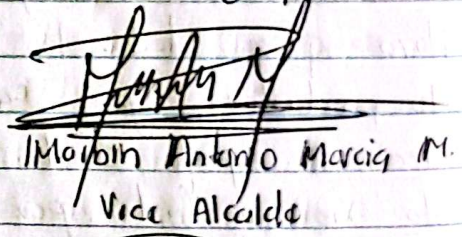 Maybin Antonio Marcia M.
Vice Alcalde